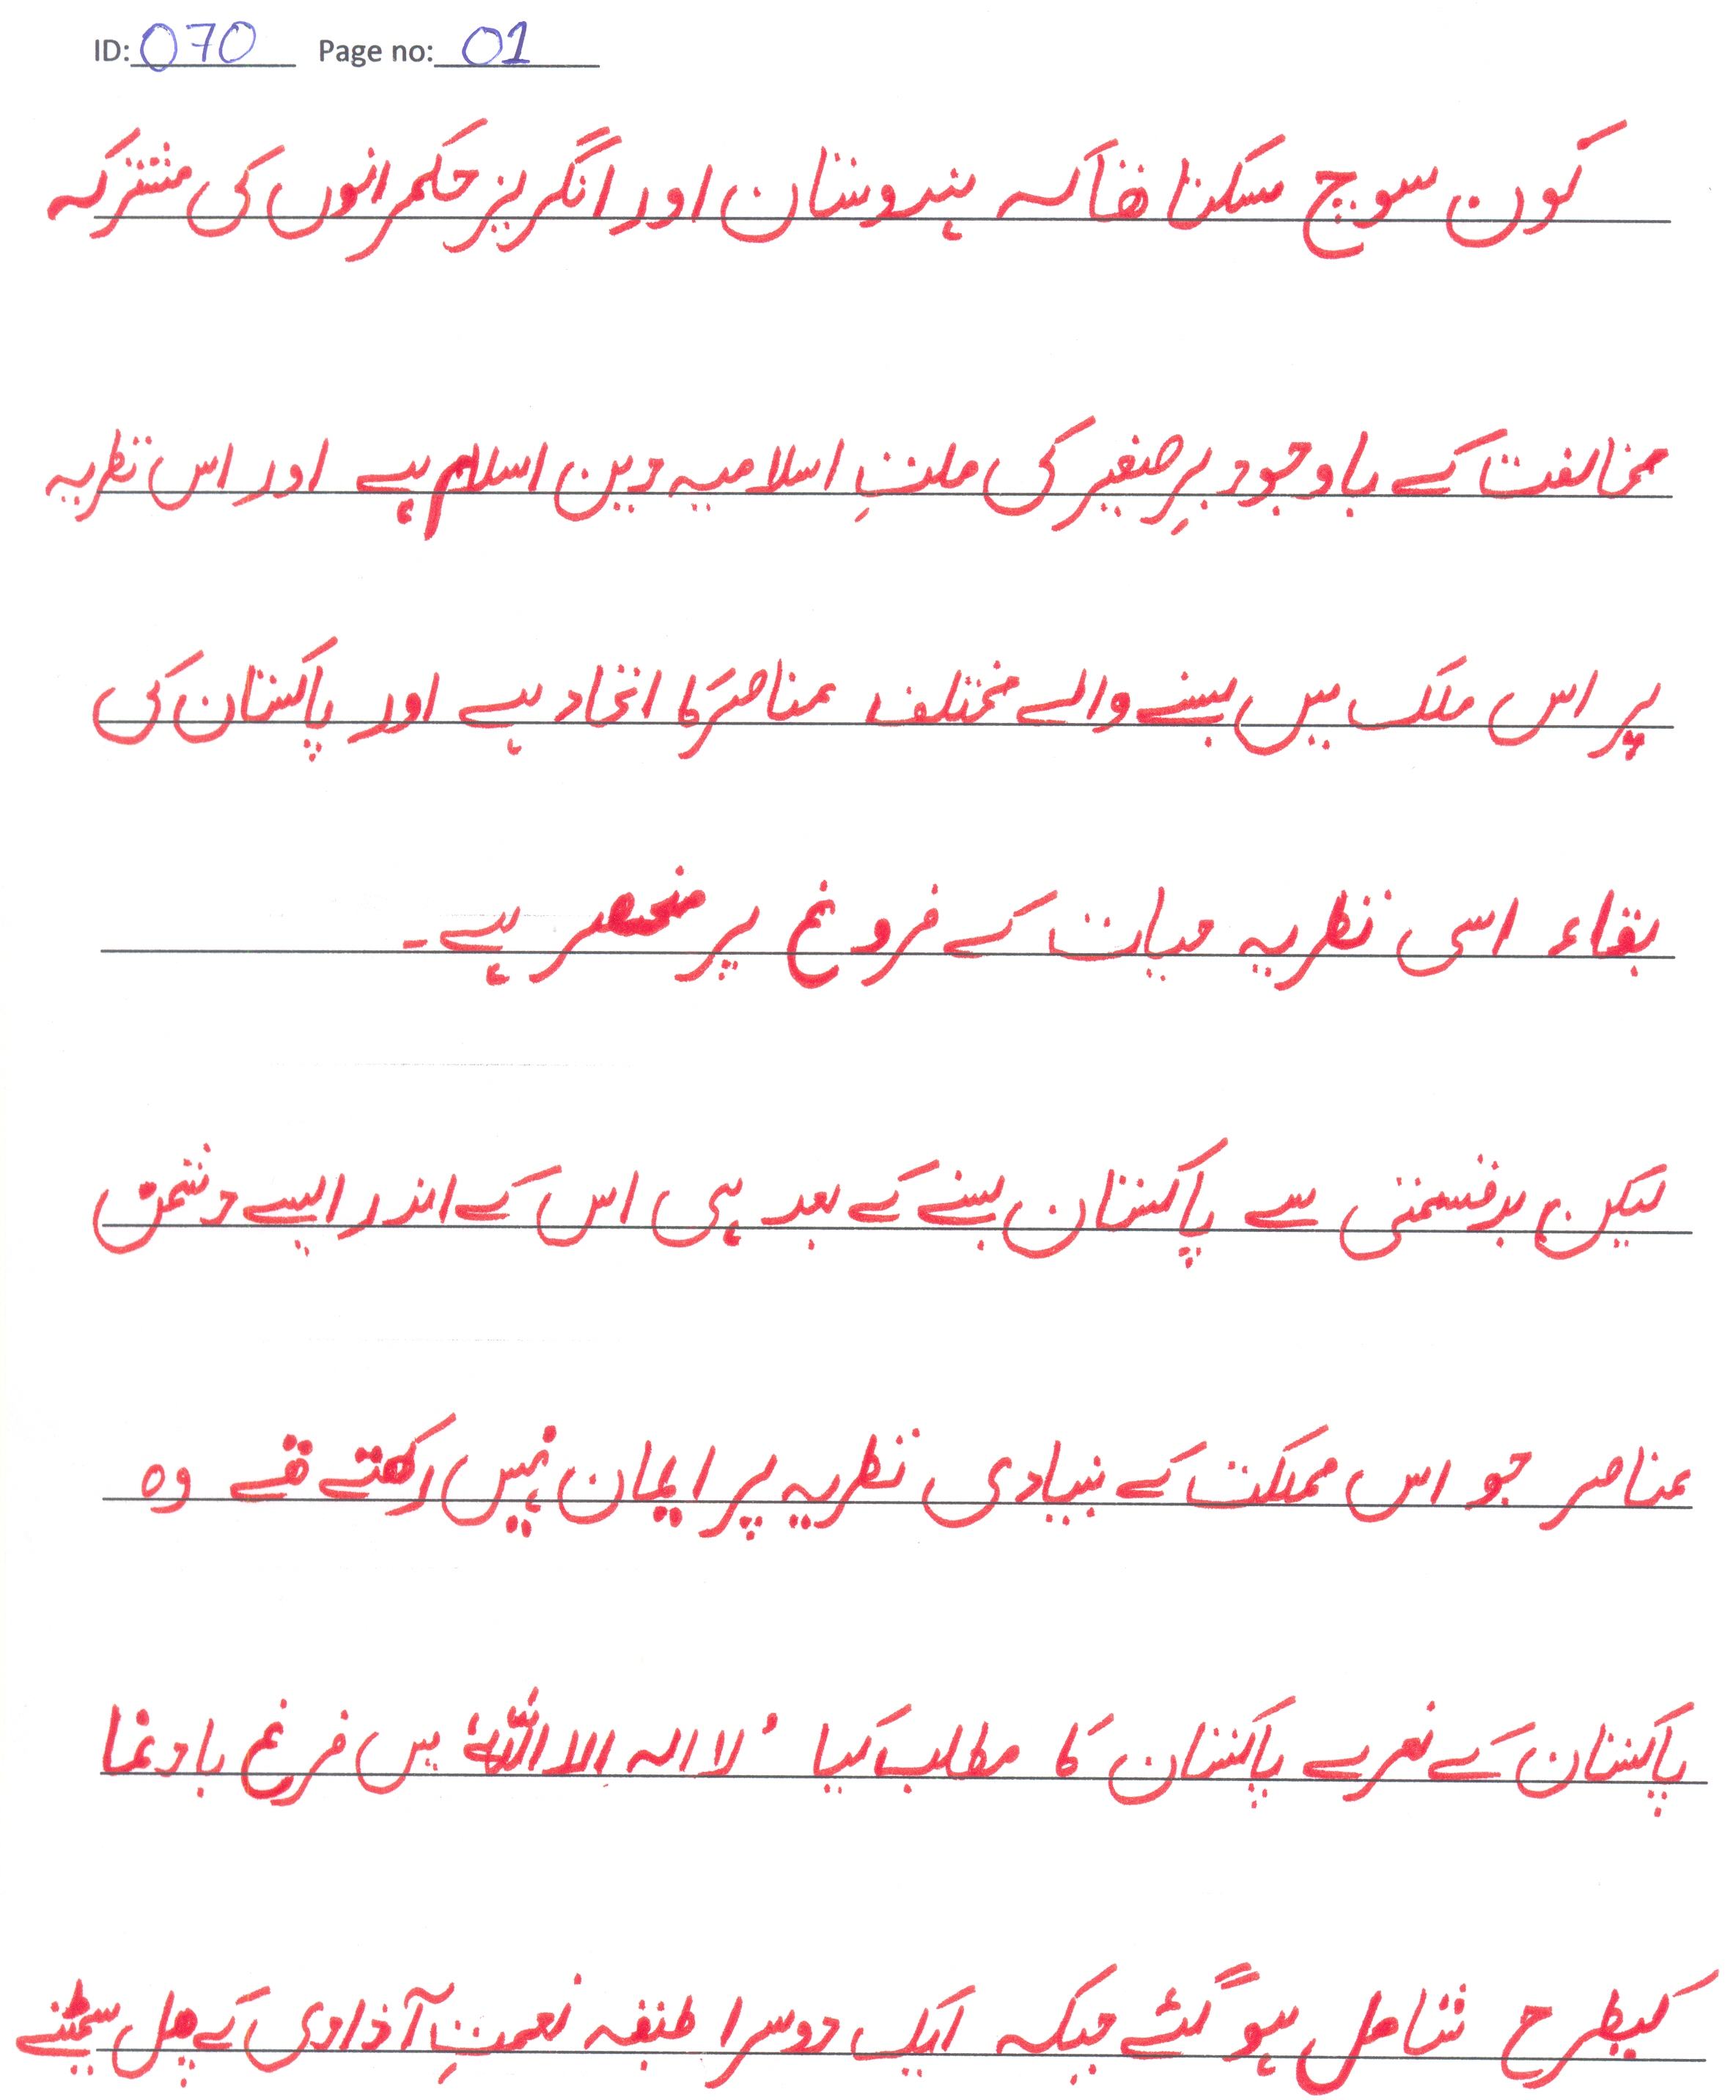 ID: 070 Page no: 01
کون سوچ سکتا تھا کہ ہندوستان اور انگریز حکمرانوں کی مشترکہ
مخالفت کے باوجود برِصغیر کی ملتِ اسلامیہ دین اسلام ہے اور اس نظریہ
پر اس ملک میں بسنے والے مختلف عناصر کا اتحاد ہے اور پاکستان کی
بقاء اسی نظریہ حیات کے فروغ پر منحصر ہے۔
لیکن بدقسمتی سے پاکستان بننے کے بعد ہی اس کے اندر ایسے دشمن
عناصر جو اس مملکت کے بنیادی نظریہ پر ایمان نہیں رکھتے تھے وہ
پاکستان کے نعرے پاکستان کا مطلب کیا ’لا الہ الا اللہ‘ میں فروغ بادنما
کیطرح شامل ہو گئے جبکہ ایک دوسرا طبقہ نعمتِ آزادی کے پھل سمیٹنے